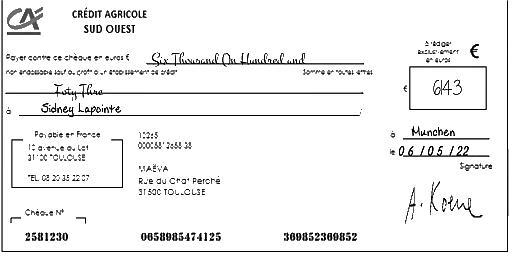 CA
CRÉDIT AGRICOLE
SUD OUEST
Payer contre ce chèque en euros € Six Thousand On Hundred and
non endossable sauf au profit d'un établissement de crédit Somme en toutes lettres
Foty Thre
à Sidney Lapointe
à rédiger
exclusivement
en euros
€
€ 6143
Payable en France
10 avenue du Lot
31100 TOULOUSE
TEL. 08 20 35 22 07
10265
MAËVA
Rue du Chat Perché
31500 TOULOUSE
à Munchen
le 06/05/22
Signature
A. Koene
Chèque N°
2581230 0658985474125 369852369852